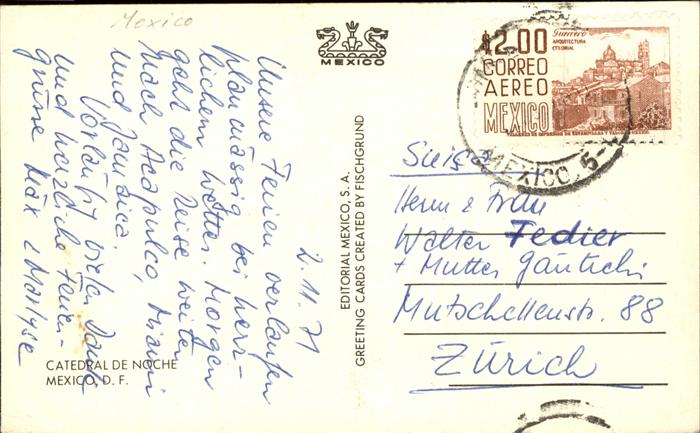 Mexico
MEXICO
2. 11. 71
Unsere Ferien verlaufen
planmässig bei herr-
lichem Wetter. Morgen
geht die Reise weiter
nach Acapulco, Miami
und Jamaica.
Vorläufig vielen Dank
und herzliche Ferien-
grüsse Max & Marlyse
CATEDRAL DE NOCHE
MEXICO, D. F.
EDITORIAL MEXICO, S. A.
GREETING CARDS CREATED BY FISCHGRUND
$2.00
Guerrero
ARQUITECTURA
COLONIAL
CORREO
AEREO
MEXICO
TALLERES DE IMPRESION DE ESTAMPILLAS Y VALORES-MEXICO.
MEXICO, 5-
Suiza
Herrn & Frau
Walter Fedier
+ Mutter Gautschi
Mutschellenstr. 88
Zürich